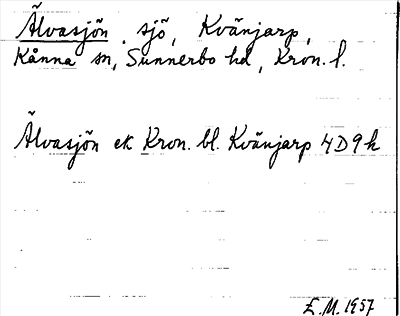 Älvasjön, sjö, Kvänjarp,
Kånna sn, Sunnerbo hd, Kron. l.
Älvasjön ek Kron. bl. Kvänjarp 4D9h
E.M. 1957